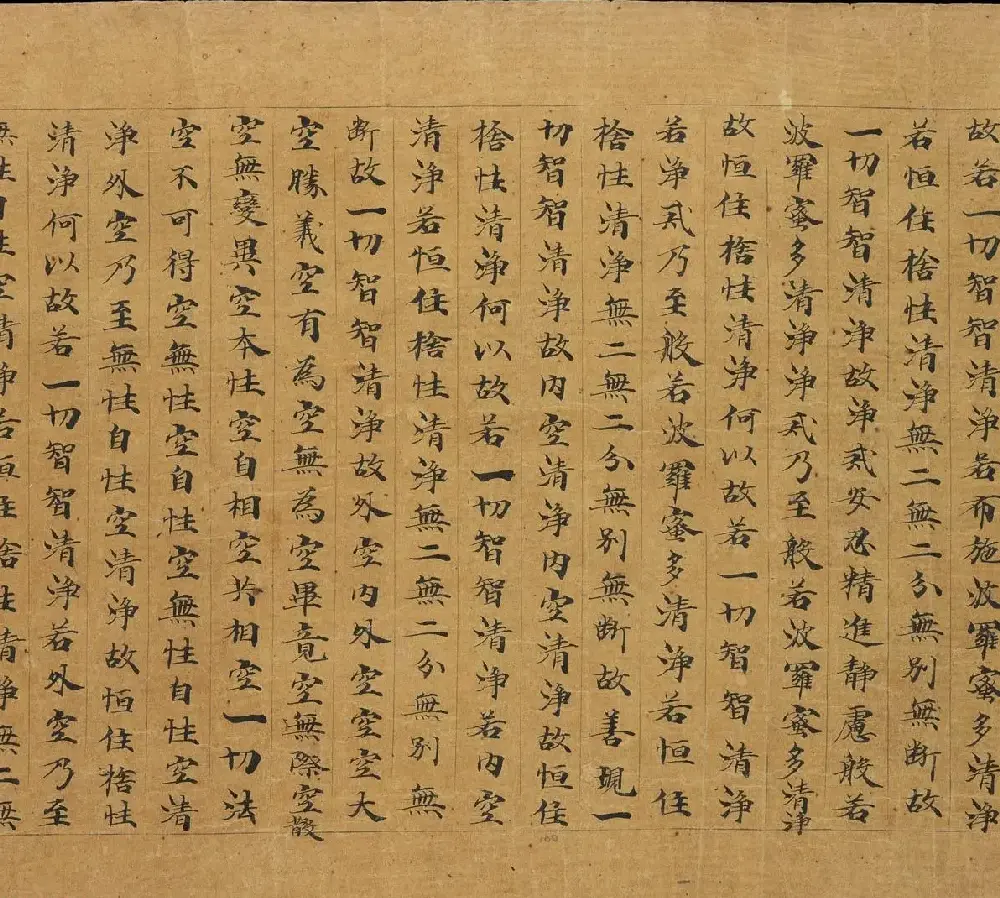 故若一切智智清淨若布施波羅蜜多清淨
若恒住捨性清淨無二無二分無別無斷故
一切智智清淨故淨貳安忍精進靜慮般若
波羅蜜多清淨淨貳乃至般若波羅蜜多清淨
故恒住捨性清淨何以故若一切智智清淨
若淨貳乃至般若波羅蜜多清淨若恒住
捨性清淨無二無二分無別無斷故善現一
切智智清淨故內空清淨內空清淨故恒住
捨性清淨何以故若一切智智清淨若內空
清淨若恒住捨性清淨無二無二分無別無
斷故一切智智清淨故外空內外空空空大
空勝義空有為空無為空畢竟空無際空散
空無變異空本性空自相空共相空一切法
空不可得空無性空自性空無性自性空清
淨外空乃至無性自性空清淨故恒住捨性
清淨何以故若一切智智清淨若外空乃至
無性自性空清淨若恒住捨性清淨無二無